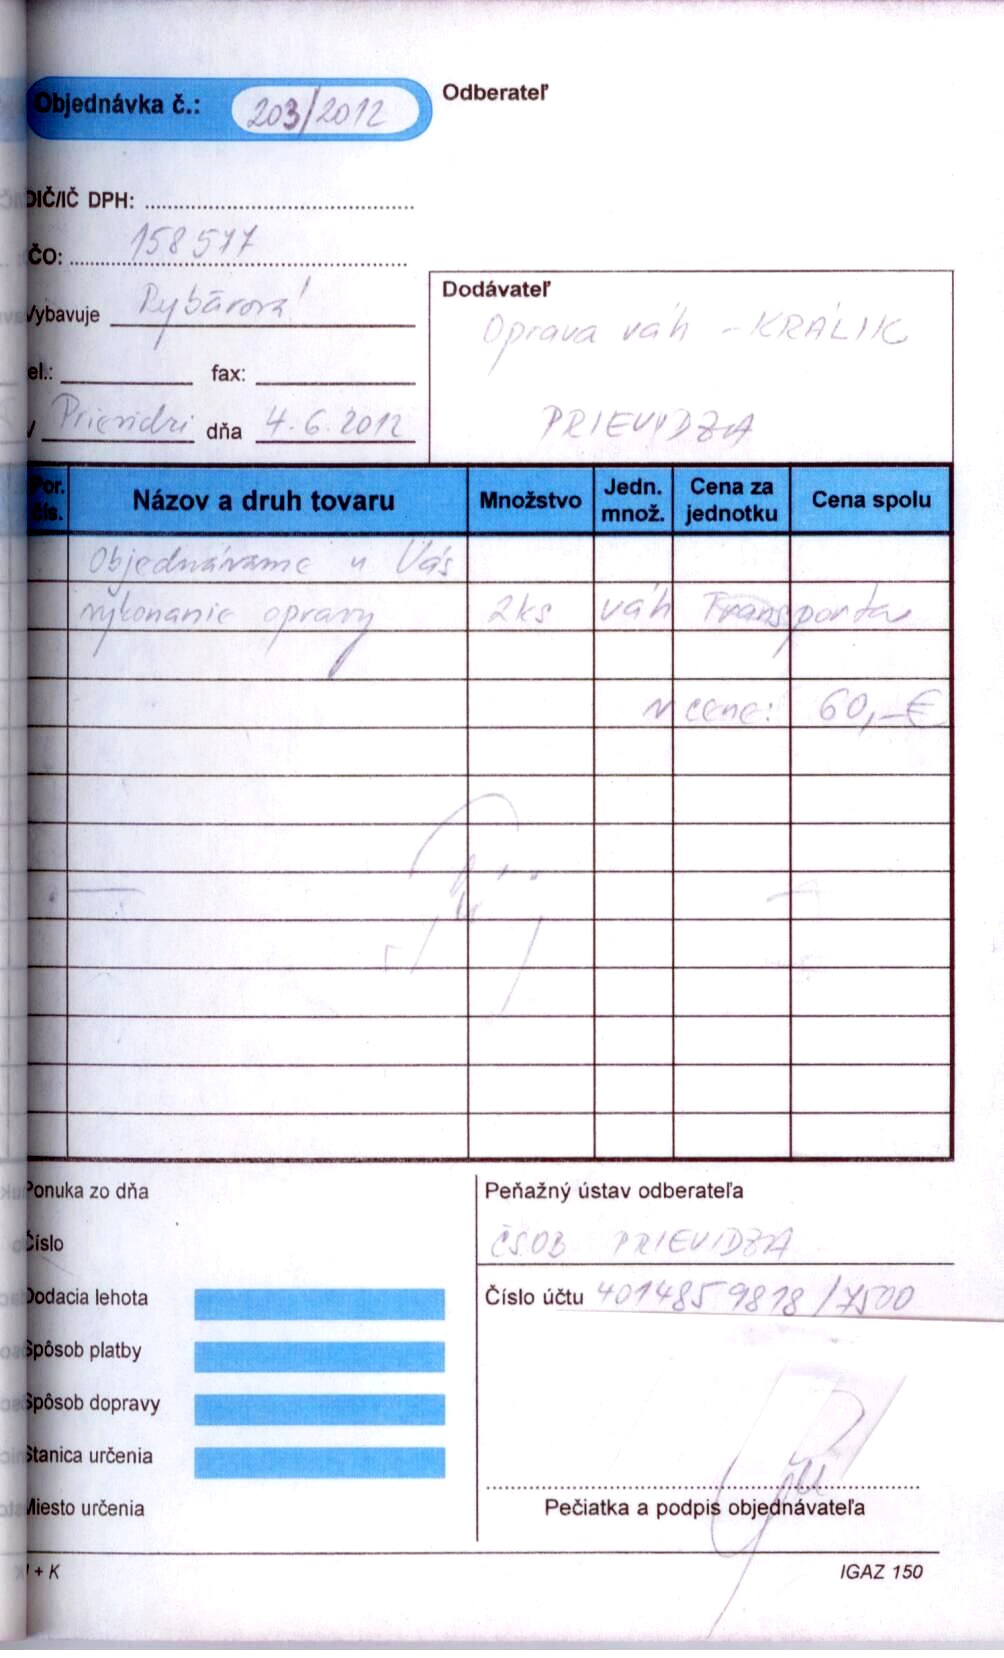 Objednávka č.: 203/2012
Odberateľ
DIČ/IČ DPH:
IČO: 158577
Vybavuje Rybárová
Tel.: fax:
V Prievidzi dňa 4.6.2012
Dodávateľ
Oprava váh - KRÁLIK
PRIEVIDZA
Por. čís. Názov a druh tovaru Množstvo Jedn. množ. Cena za jednotku Cena spolu
Objednávame u Vás
vykonanie opravy 2ks váh Transporta
v cene: 60,-€
Ponuka zo dňa
Číslo
Dodacia lehota
Spôsob platby
Spôsob dopravy
Stanica určenia
Miesto určenia
Peňažný ústav odberateľa
ČSOB PRIEVIDZA
Číslo účtu 4014859818/7500
Pečiatka a podpis objednávateľa
+ K
IGAZ 150